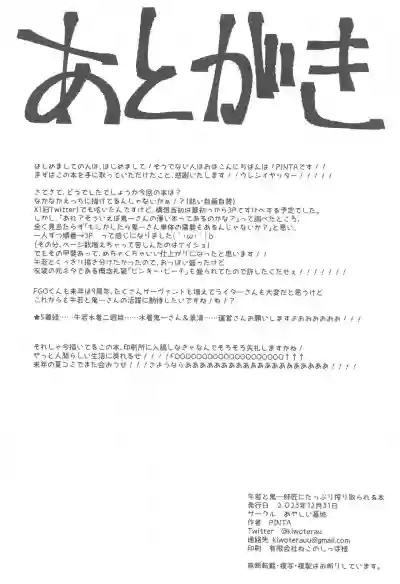 あとがき
はじめましての人は、はじめまして！そうでない人はおはこんにちばんは！PINTAです！！
まずはこの本を手に取っていただけたこと、感謝いたします！！ウレシイヤッター！！！！！
さてさて、どうでしたでしょうか今回の本は？
なかなかえっちに描けてるんじゃないかぁ！？(熱い自画自賛)
X(旧Twitter)でも呟いたんですけど、構想当初は最初っから3Pですけべする予定でした。
しかし、「あれ？そういえば鬼一さんの薄い本ってあるのかな？」って調べたところ、
全く見当たらず「もしかしたら鬼一さん単体の需要もあるんじゃないか？」と思い、
一人ずつ順番→3P って感じになりました(｀･ω･´)b
(その分、ページ数増えちゃって苦しんだのはナイショ)
でもその甲斐あって、めちゃくちゃいい仕上がりになったと思います！！
牛若とくっきり描き分けたかったので、おっぱい盛ったけど
衣装の元ネタである概念礼装「ピンキー・ビーチ」も盛られてたので許してくださいな！！！！！！！
FGOくんも来年は9周年、たくさんサーヴァントも増えてライターさんも大変だと思うけど
これからも牛若と鬼一さんの活躍に期待したいですね！ね！？
それじゃ今描いてるこの本、印刷所に入稿しなきゃなんでそろそろ失礼しますかね！
牛若と鬼一師匠にたっぷり搾り取られる本
発行日 2023年12月31日
サークル あやしい墓地
作者 PINTA
Twitter @kiwoterau
連絡先 kiwoterauu@gmail.com
印刷 有限会社ねこのしっぽ様
無断転載・複写・複製はお断りしています。